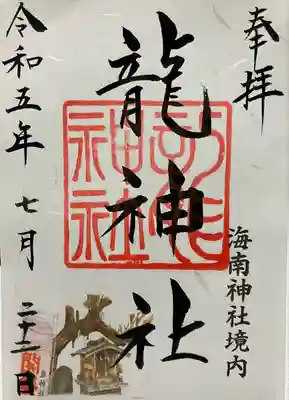 奉拝
海南神社境内
龍神社
令和五年 七月 二十二日